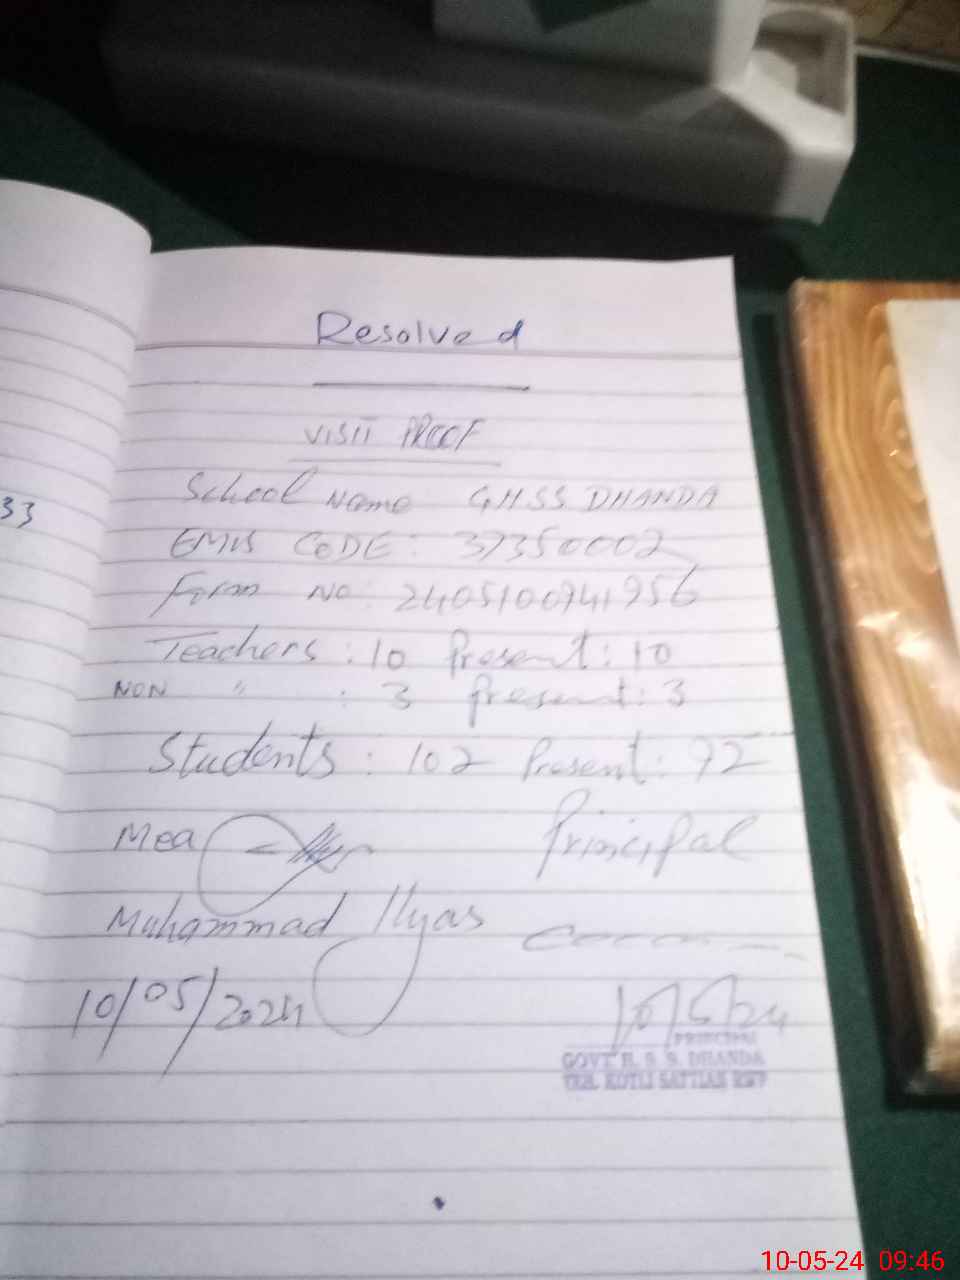 Resolved
VISIT PROOF
School Name GHSS DHANDA
33
EMIS CODE: 37350002
Form No: 2405100941956
Teachers : 10 Present : 10
NON " : 3 Present : 3
Students : 102 Present : 92
Mea
Principal
Muhammad Ilyas
10/05/2024
10/5/24
PRINCIPAL
GOVT H. S. S. DHANDA
TEH. KOTLI SATTIAN RWP
10-05-24 09:46